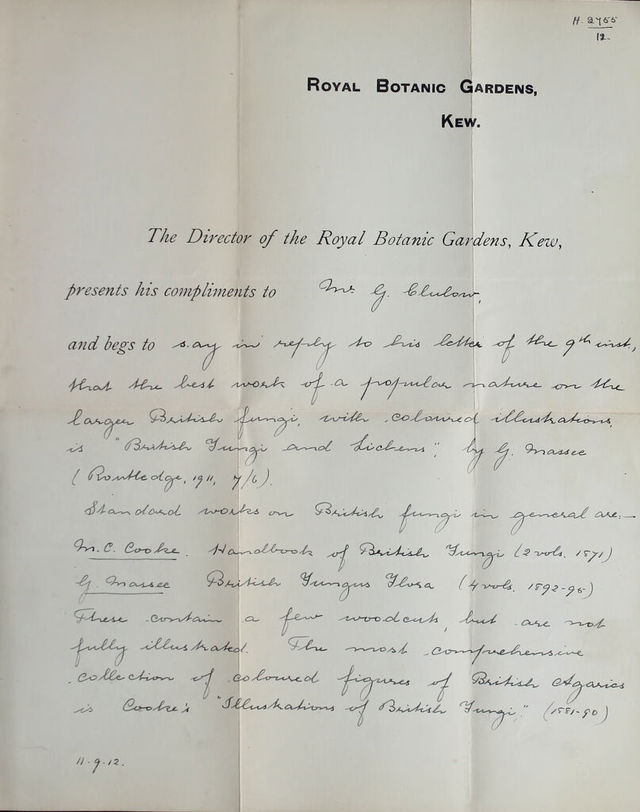 H. 2755
12.
ROYAL BOTANIC GARDENS,
KEW.
The Director of the Royal Botanic Gardens, Kew,
presents his compliments to Mr. G. Clulow,
and begs to say in reply to his letter of the 9th inst,
that the best work of a popular nature on the
larger British fungi, with coloured illustrations,
is "British Fungi and Lichens", by G. Massee
(Routledge, 1911, 7/6).
Standard works on British fungi in general are:—
M.C. Cooke. Handbook of British Fungi (2 vols. 1871)
G. Massee British Fungus Flora (4 vols. 1892-95)
These contain a few woodcuts, but are not
fully illustrated. The most comprehensive
collection of coloured figures of British Agarics
is Cooke's "Illustrations of British Fungi," (1881-90)
11-9-12.